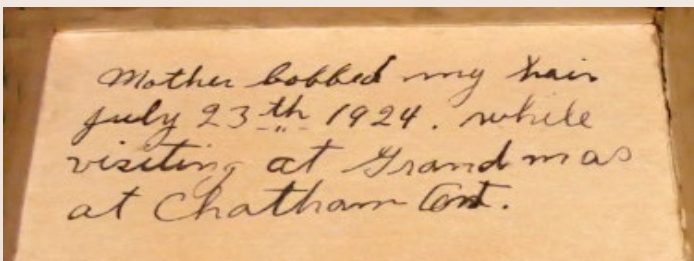 Mother bobbed my hair
July 23th 1924. while
visiting at Grandmas
at Chatham Ont.